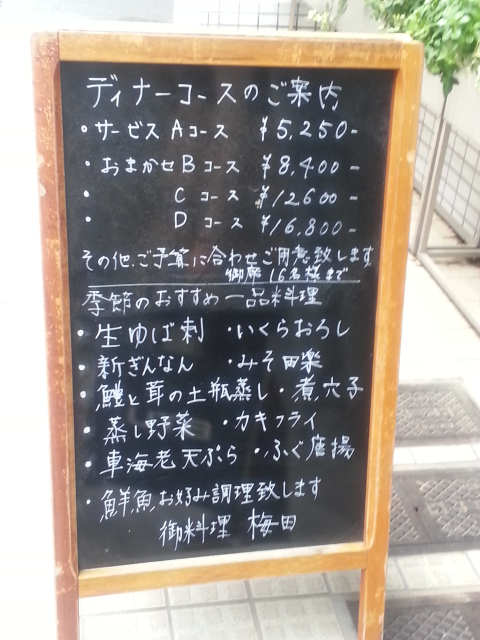 ディナーコースのご案内
・サービスAコース ¥5,250-
・おまかせBコース ¥8,400-
・ Cコース ¥12600-
・ Dコース ¥16,800-
その他、ご予算に合わせご用意致します
御席 16名様まで
季節のおすすめ一品料理
・生ゆば刺 ・いくらおろし
・新ぎんなん ・みそ田楽
・鱧と茸の土瓶蒸し・煮穴子
・蒸し野菜 ・カキフライ
・車海老天ぷら・ふぐ唐揚
・鮮魚お好み調理致します
御料理 梅田